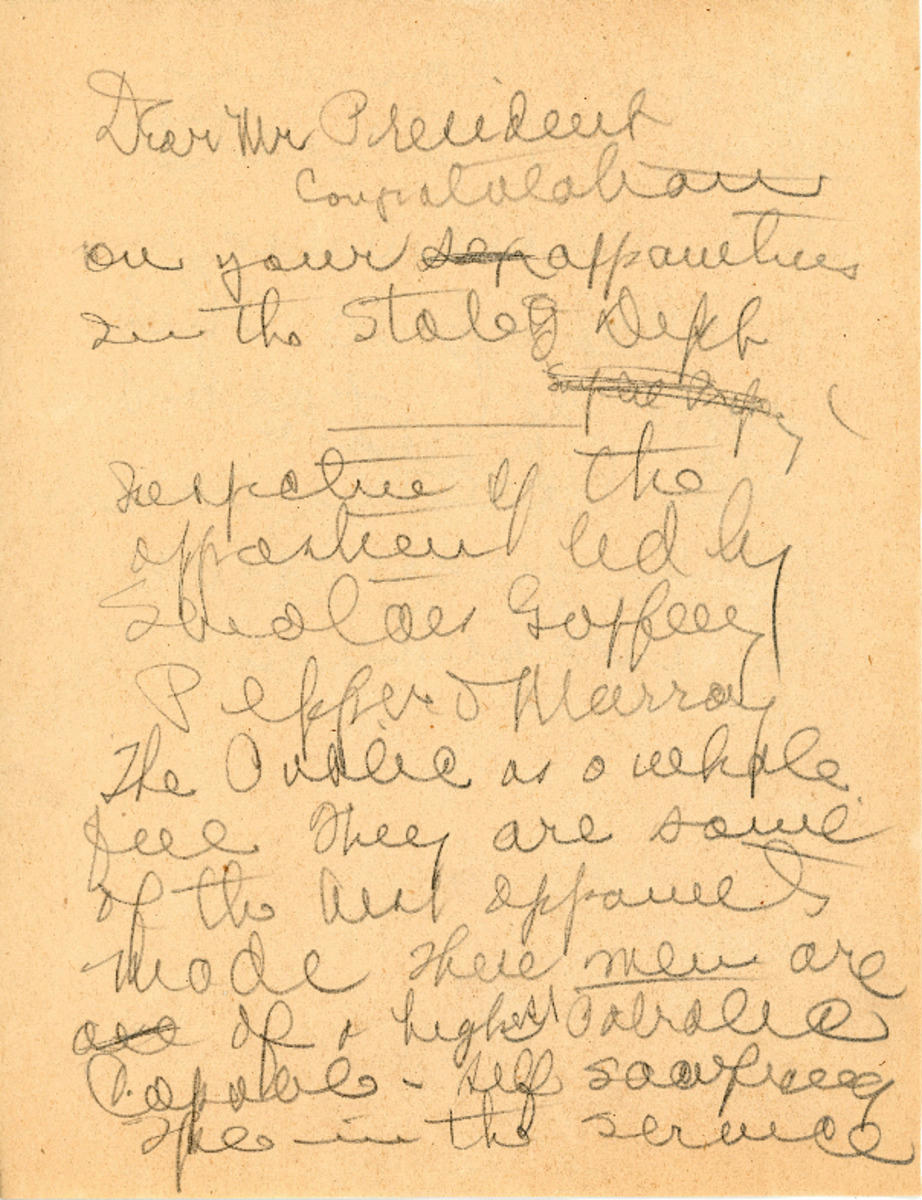 Dear Mr President
Congratulations
on your appointments
in the States Dept
Irrespective of the
opposition led by
Senators Guffey
Pepper & Murray
The Public as a whole
feel they are some
of the best appoments
Made These men are
of a highest Patriotic
Capable - self sacrificing
type in the service